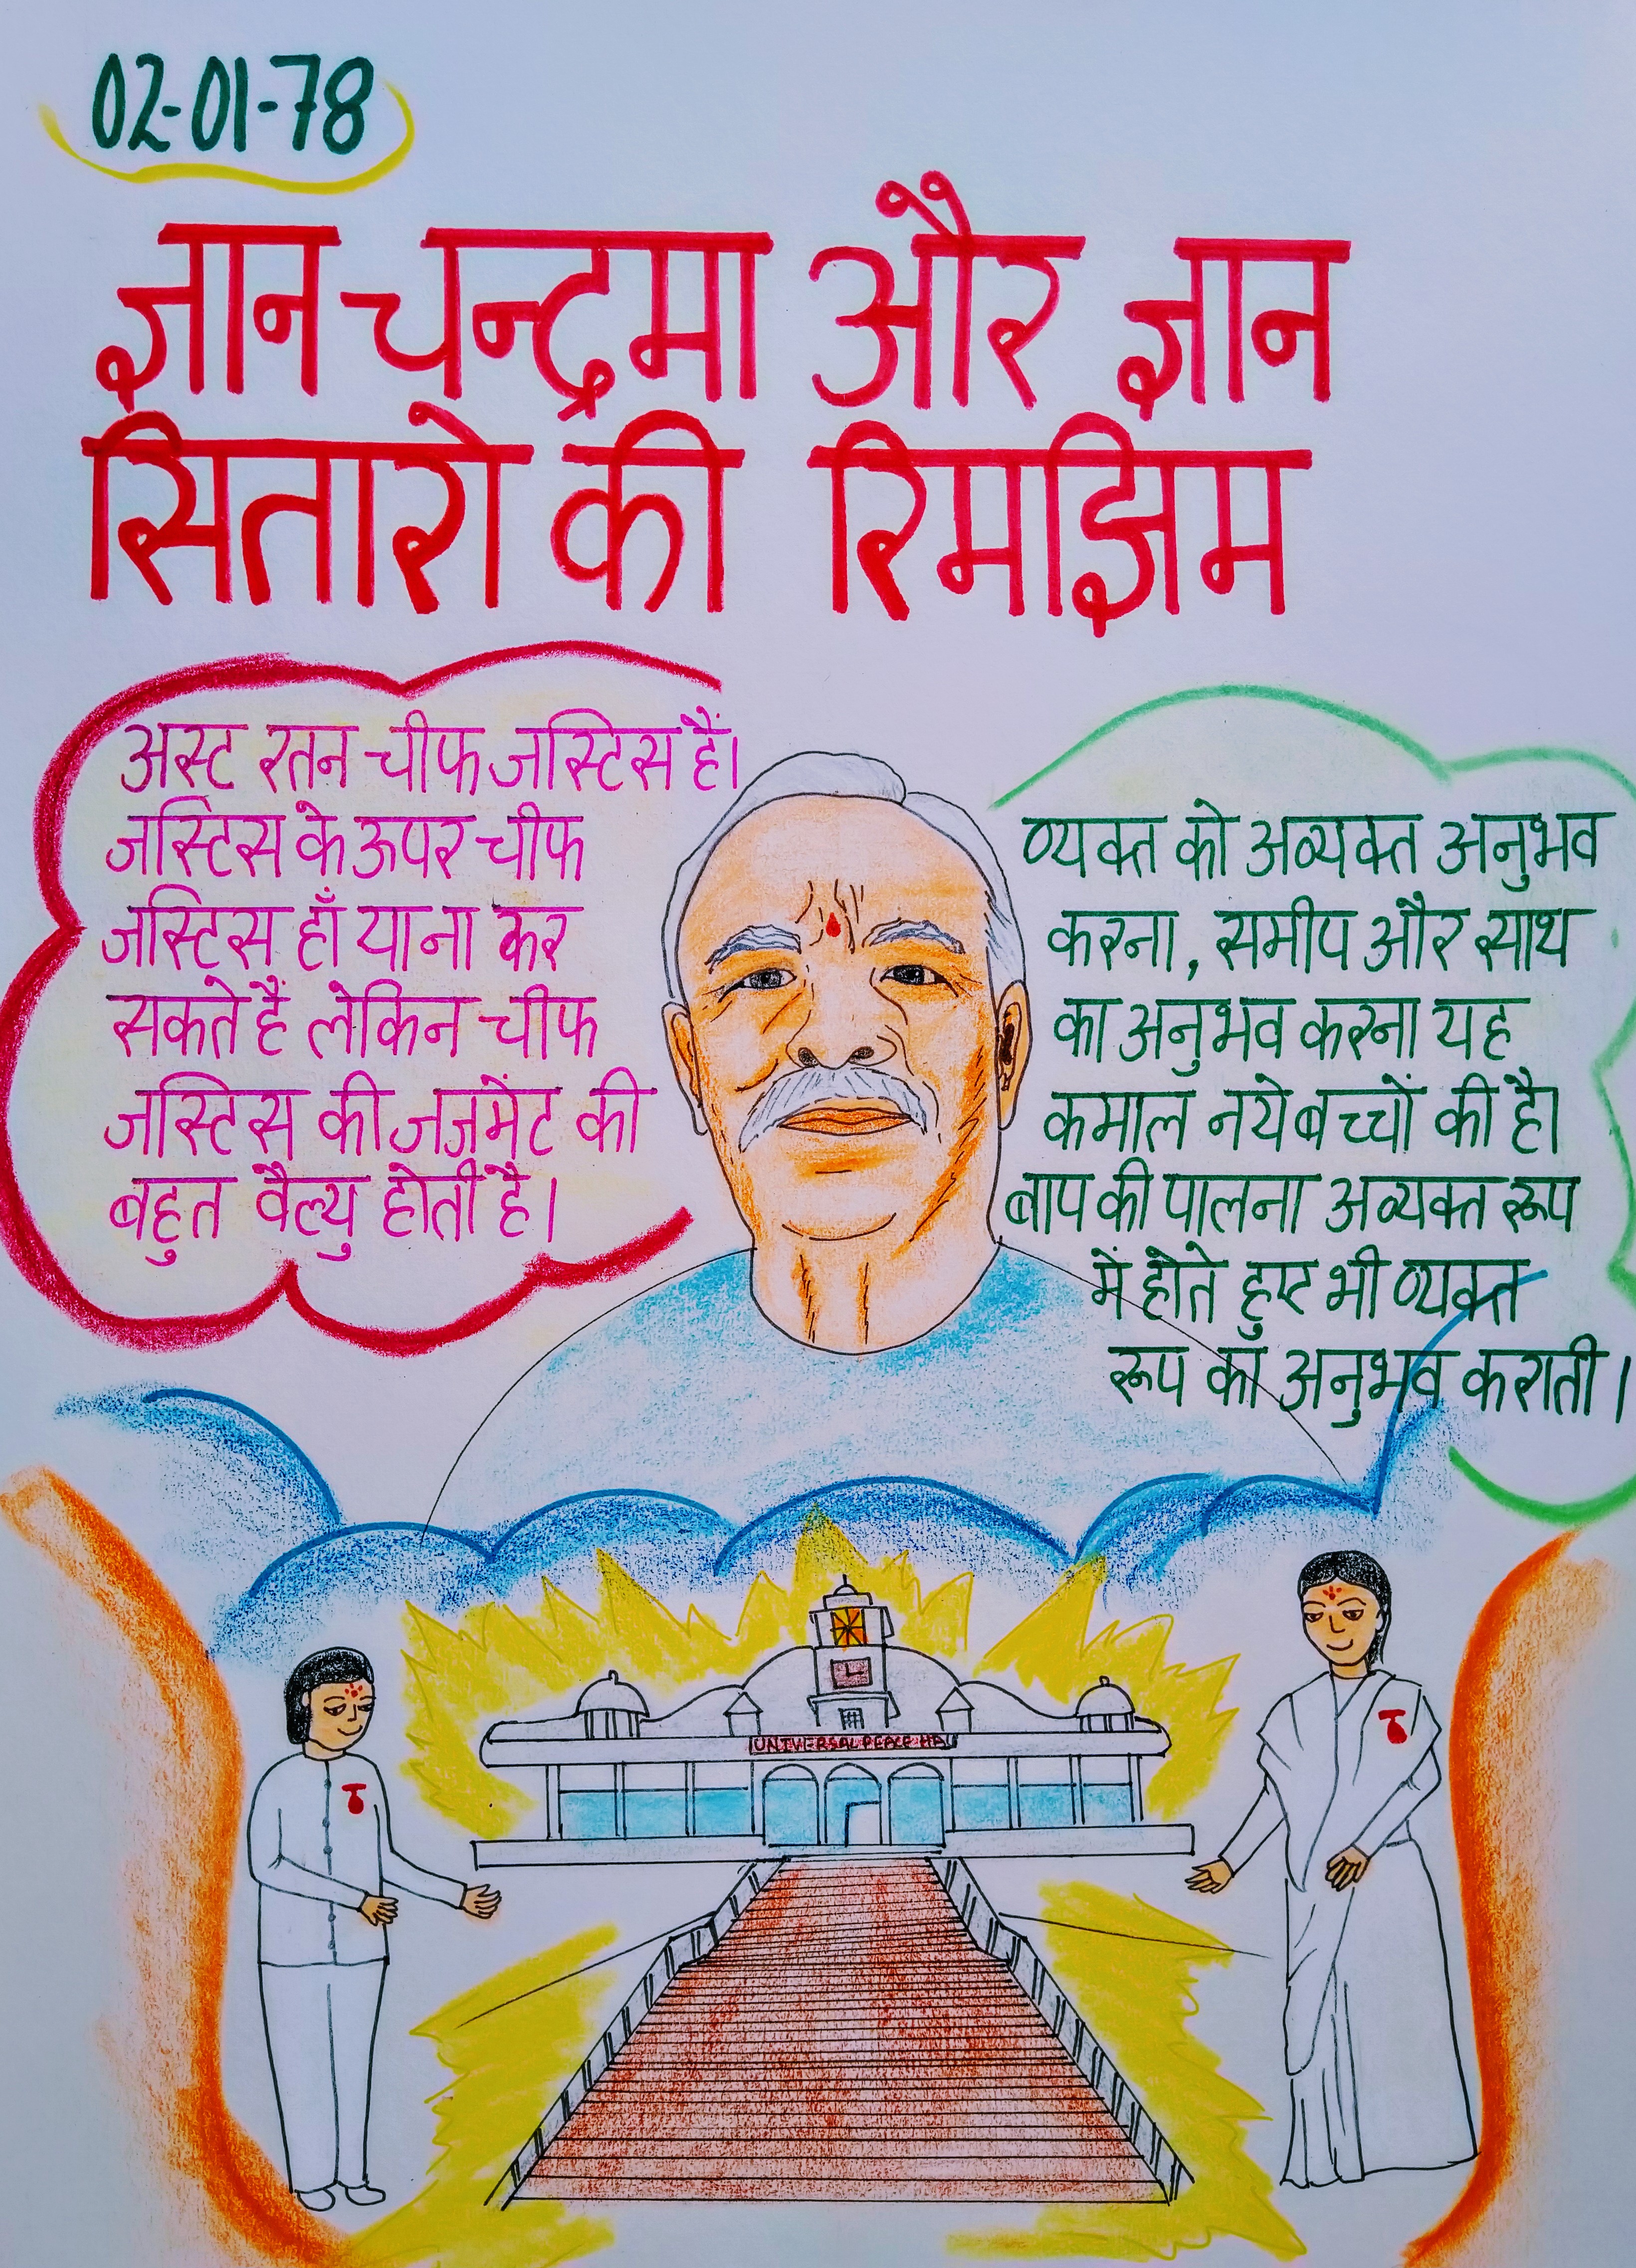 02-01-78
ज्ञान चन्द्रमा और ज्ञान
सितारो की रिमझिम
अस्ट रतन चीफ जस्टिस हैं।
जस्टिस के ऊपर चीफ
जस्टिस हाँ या ना कर
सकते हैं लेकिन चीफ
जस्टिस की जजमेंट की
बहुत वैल्यु होती है।
व्यक्त को अव्यक्त अनुभव
करना, समीप और साथ
का अनुभव करना यह
कमाल नये बच्चों की है।
बाप की पालना अव्यक्त रूप
में होते हुए भी व्यक्त
रूप का अनुभव कराती।
UNIVERSAL PEACE HAL